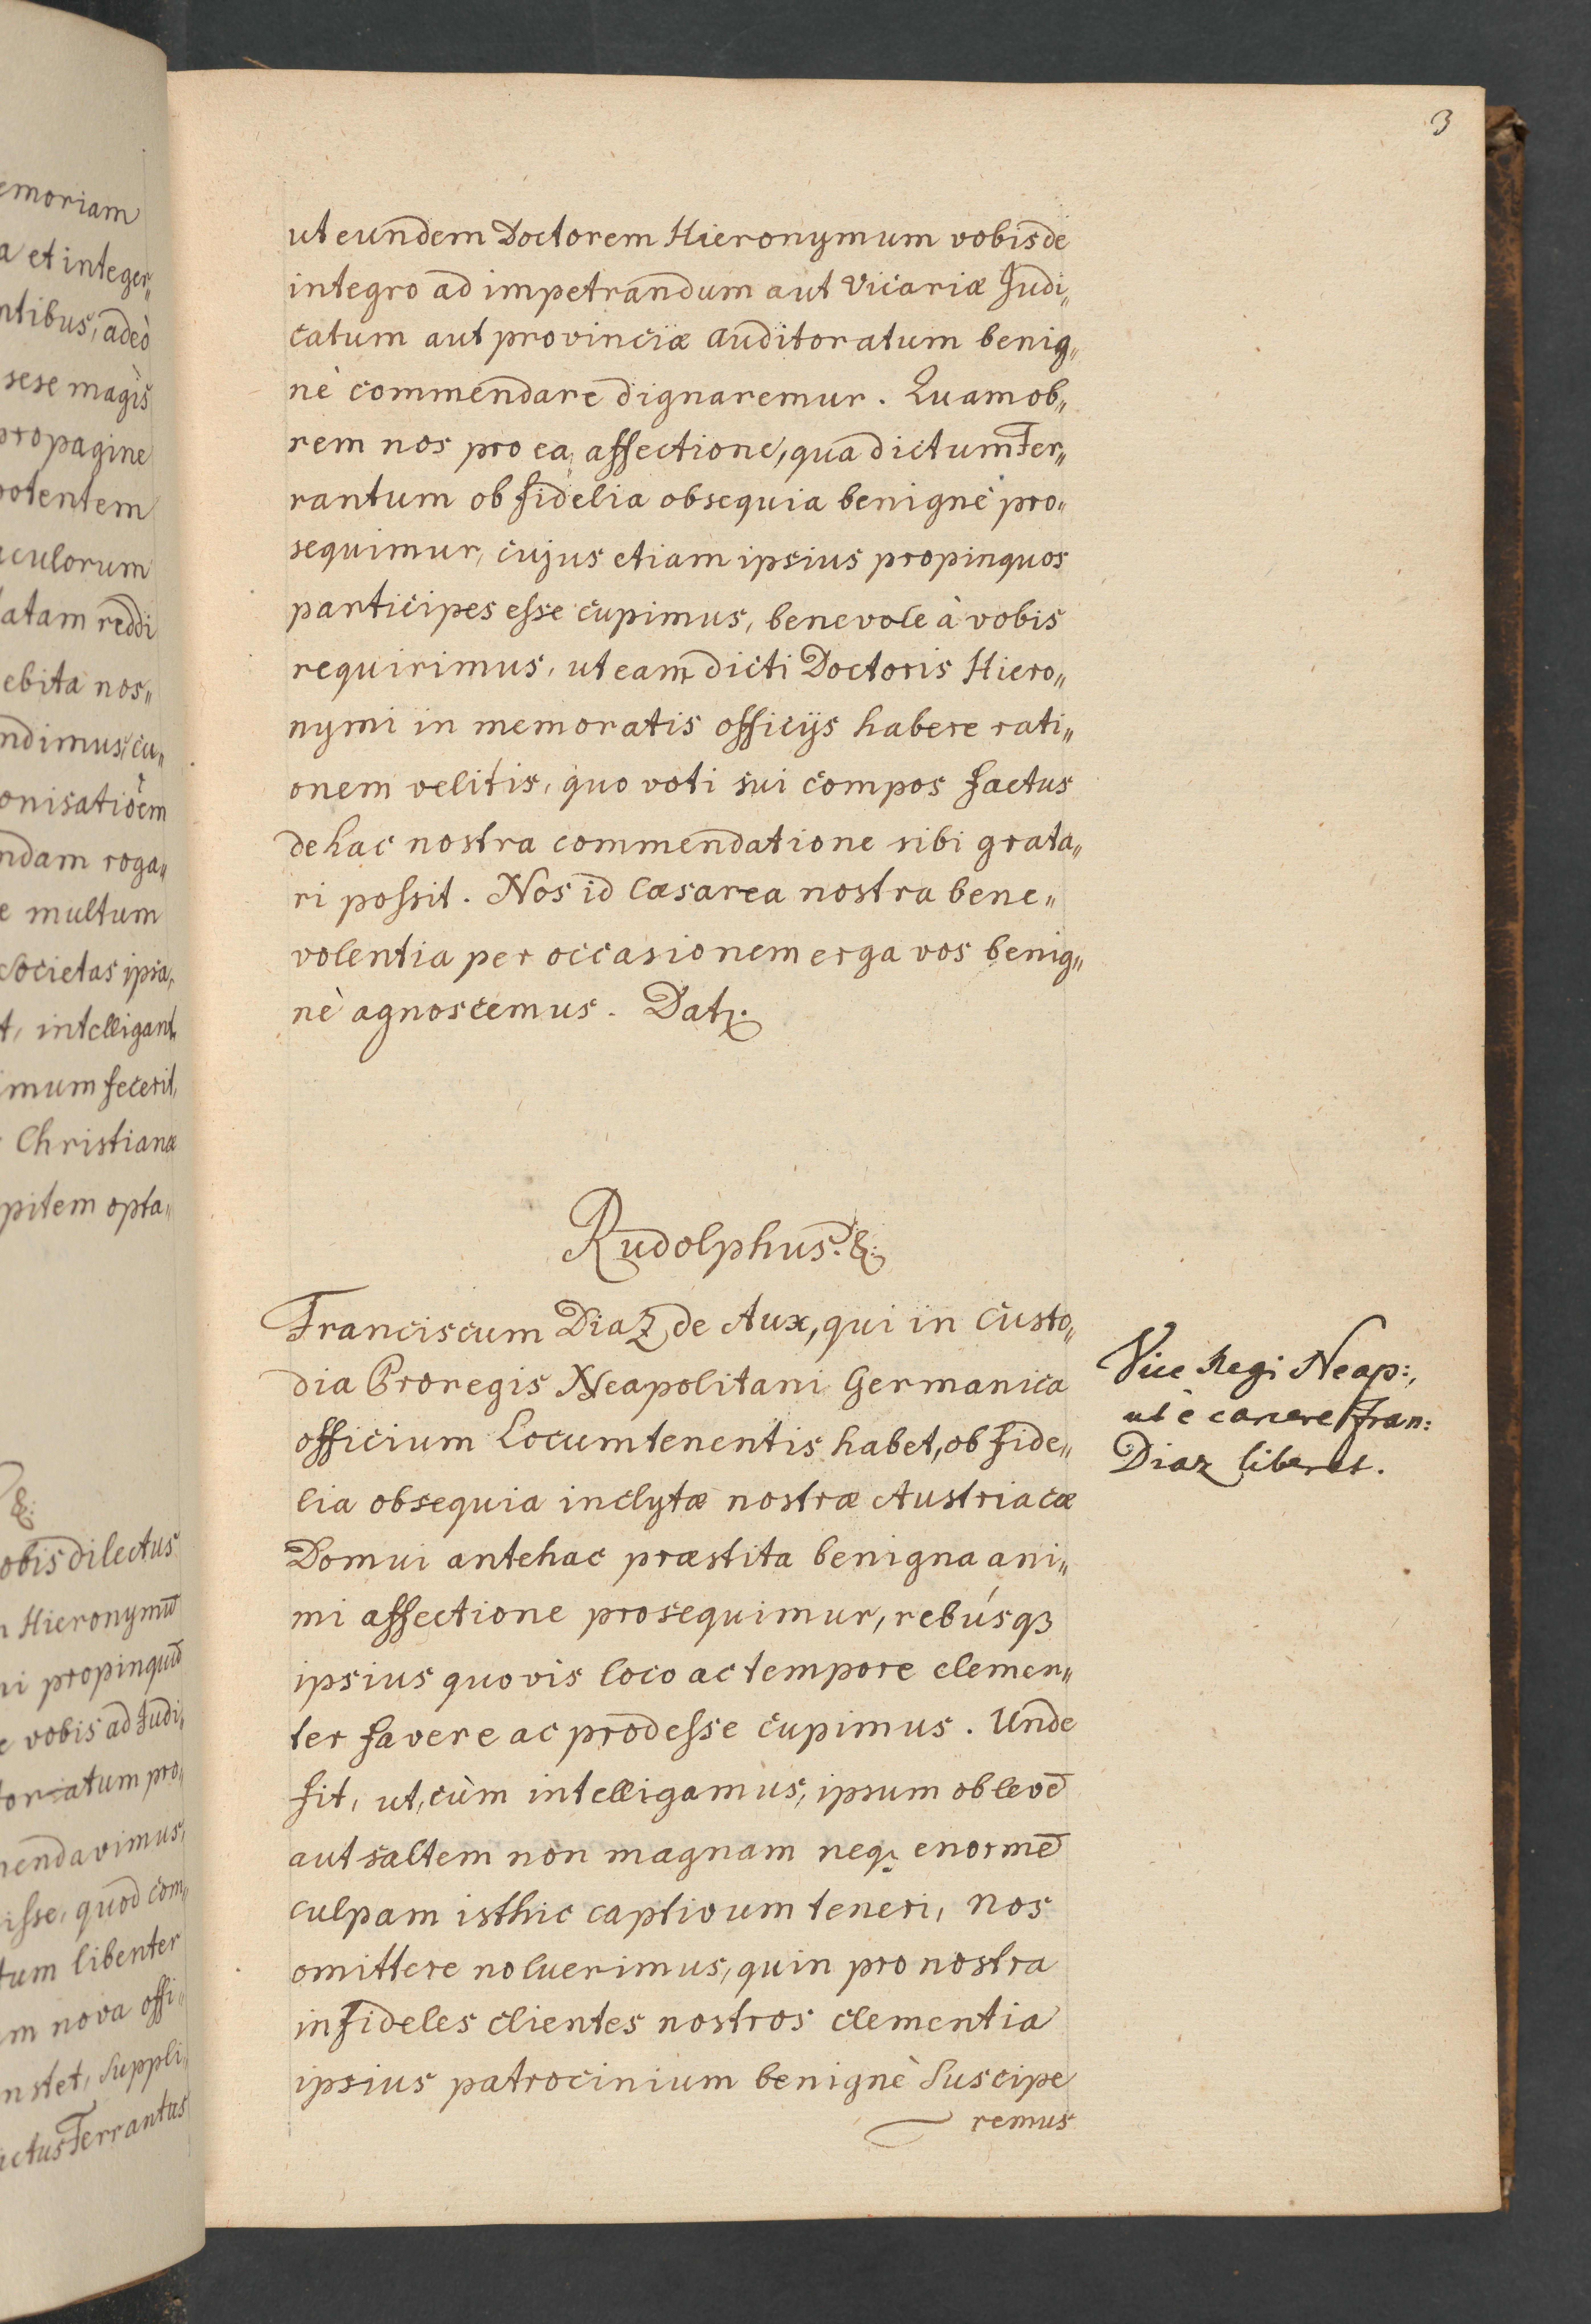 3
ut eundem Doctorem Hieronymum vobis de
integro ad impetrandum aut Vicariæ Judi„
catum aut provinciæ auditoratum benig„
nè commendare dignaremur. Quamob„
rem nos pro ea affectione, qua dictum Fer„
rantum ob fidelia obsequia benignè pro„
sequimur, cujus etiam ipsius propinquos
participes esse cupimus, benevole à vobis
requirimus, ut eam dicti Doctoris Hiero„
nymi in memoratis officijs habere rati„
onem velitis, quo voti sui compos factus
de hac nostra commendatione sibi grata„
ri possit. Nos id Cæsarea nostra bene„
volentia per occasionem erga vos benig„
nè agnoscemus. Dat.
Rudolphus. &:
Franciscum Diaz de Aux, qui in custo„
dia Proregis Neapolitani Germanica
officium Locumtenentis habet, ob fide„
lia obsequia inclytæ nostræ Austriacæ
Domui antehac præstita benigna ani„
mi affectione prosequimur, rebúsqꝫ
ipsius quovis loco ac tempore clemen„
ter favere ac prodesse cupimus. Unde
fit, ut, cùm intelligamus, ipsum ob levē
aut saltem non magnam neqꝫ enormē
culpam isthic captivum teneri, nos
omittere noluerimus, quin pro nostra
in fideles clientes nostros clementia
ipsius patrocinium benignè susciperemus
Vice Regi Neap:,
ut è carcere Fran:
Diaz liberet.
emoriam
a et integer„
ntibus, adeò
sese magis
propagine
potentem
aculorum
latam reddi
ebita nos„
ndimus, cu„
onisatiõem
ndam roga„
e multum
societas ipsa,
t, intelligant,
imum fecerit,
Christianæ
pitem opta„
&:
obis dilectus
n Hieronymū
ni propinquū
e vobis ad Judi„
toriatum pro„
mendavimus,
isse, quod com„
tum libenter
um nova offi„
nstet, suppli„
ictus Ferrantus